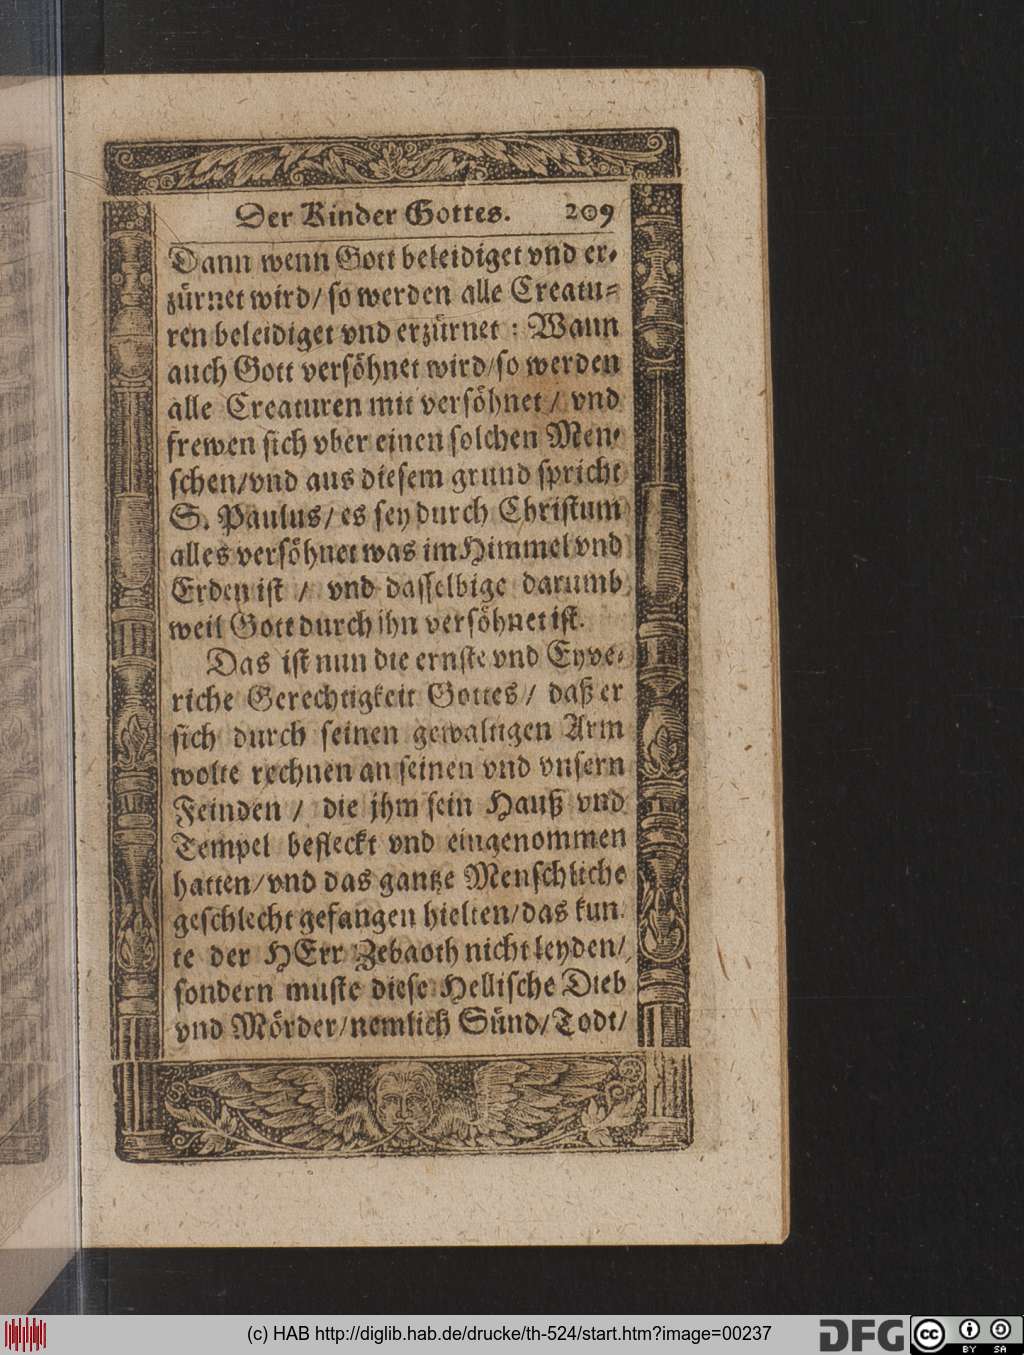 Der Kinder Gottes. 209
Dann wenn Gott beleidiget vnd er-
zürnet wird/ so werden alle Creatu-
ren beleidiget vnd erzürnet : Wann
auch Gott versöhnet wird/ so werden
alle Creaturen mit versöhnet / vnd
frewen sich vber einen solchen Men-
schen/ vnd aus diesem grund spricht
S. Paulus/ es sey durch Christum
alles versöhnet was im Himmel vnd
Erden ist / vnd dasselbige darumb
weil Gott durch ihn versöhnet ist.
Das ist nun die ernste vnd Eyve-
riche Gerechtigkeit Gottes/ daß er
sich durch seinen gewaltigen Arm
wolte rechnen an seinen vnd vnsern
Feinden / die jhm sein Hauß vnd
Tempel befleckt vnd eingenommen
hatten/ vnd das gantze Menschliche
geschlecht gefangen hielten/ das kun-
te der HErr Zebaoth nicht leyden/
sondern muste diese Hellische Dieb
vnd Mörder/ nemlich Sünd/ Todt/
(c) HAB http://diglib.hab.de/drucke/th-524/start.htm?image=00237
DFG
cc
BY SA